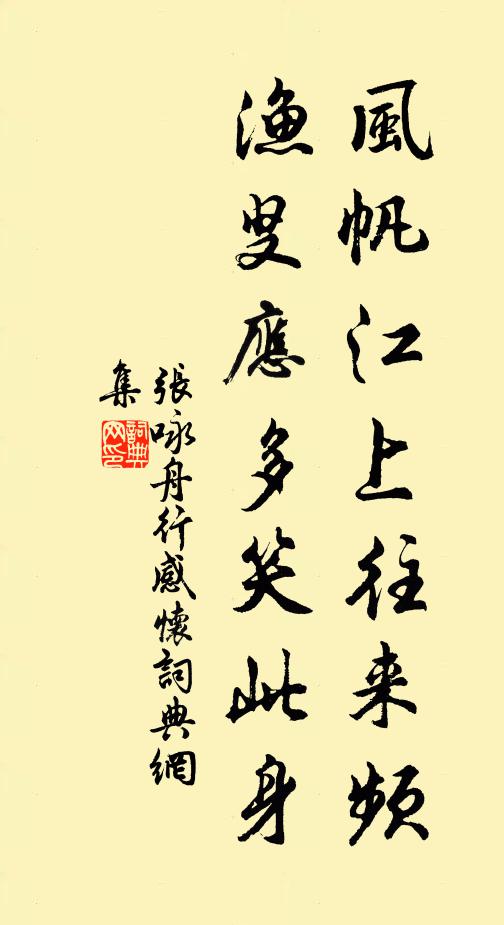 風帆江上往来頻
漁叟應多笑此身
張咏舟行感懷詞典網
集
詞典
网印